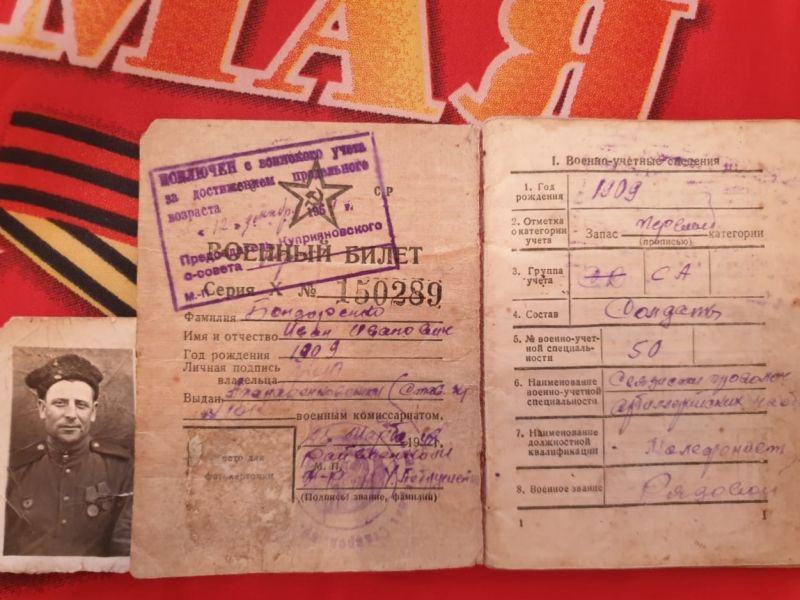 МАЯ
ИСКЛЮЧЕН с воинского учета
за достижением предельного
возраста
«12» декабря 195 г.
Председатель Куприяновского
с-совета
М.П.
СР
ВОЕННЫЙ БИЛЕТ
Серия X № 150289
Фамилия Бондаренко
Имя и отчество Иван Иванович
Год рождения 1909
Личная подпись
владельца
Выдан
военным комиссариатом.
Марта 19 г.
Место для
фотокарточки
М. П.
(Подпись звание, фамилия)
I. Военно-учетные сведения
1. Год
рождения 1909
2. Отметка
о категории
учета Запас первой категории
(прописью)
3. Группа
учета СА
4. Состав Солдаты
5. № военно-учет-
ной специаль-
ности 50
6. Наименование
военно-учетной
специальности
артиллерийских
7. Наименование
должностной
квалификации Телефонист
8. Военное звание Рядовой
1
1